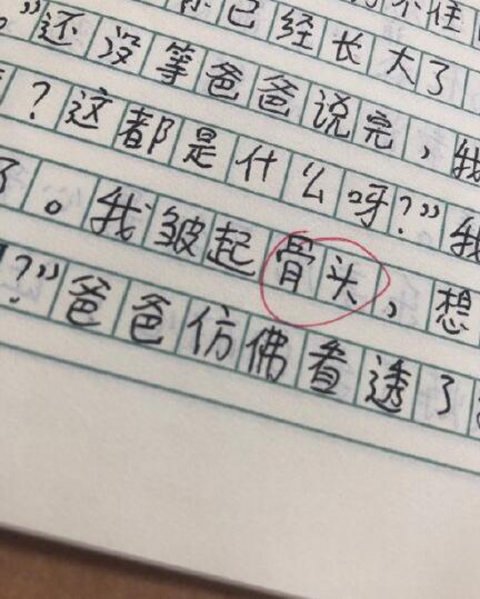 你已经长大了
。”还没等爸爸说完，我
？这都是什么呀？”我
了。我皱起骨头，想
？”爸爸仿佛看透了